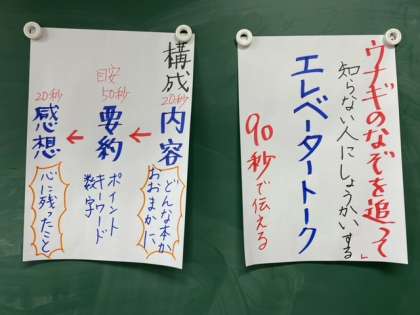 ウナギのなぞを追って」
知らない人にしょうかいする
エレベータートーク
90秒で伝える
構成
20秒
内容
どんな本か
おおまかに
目安
50秒
要約
ポイント
キーワード
数字
20秒
感想
心に残ったこと